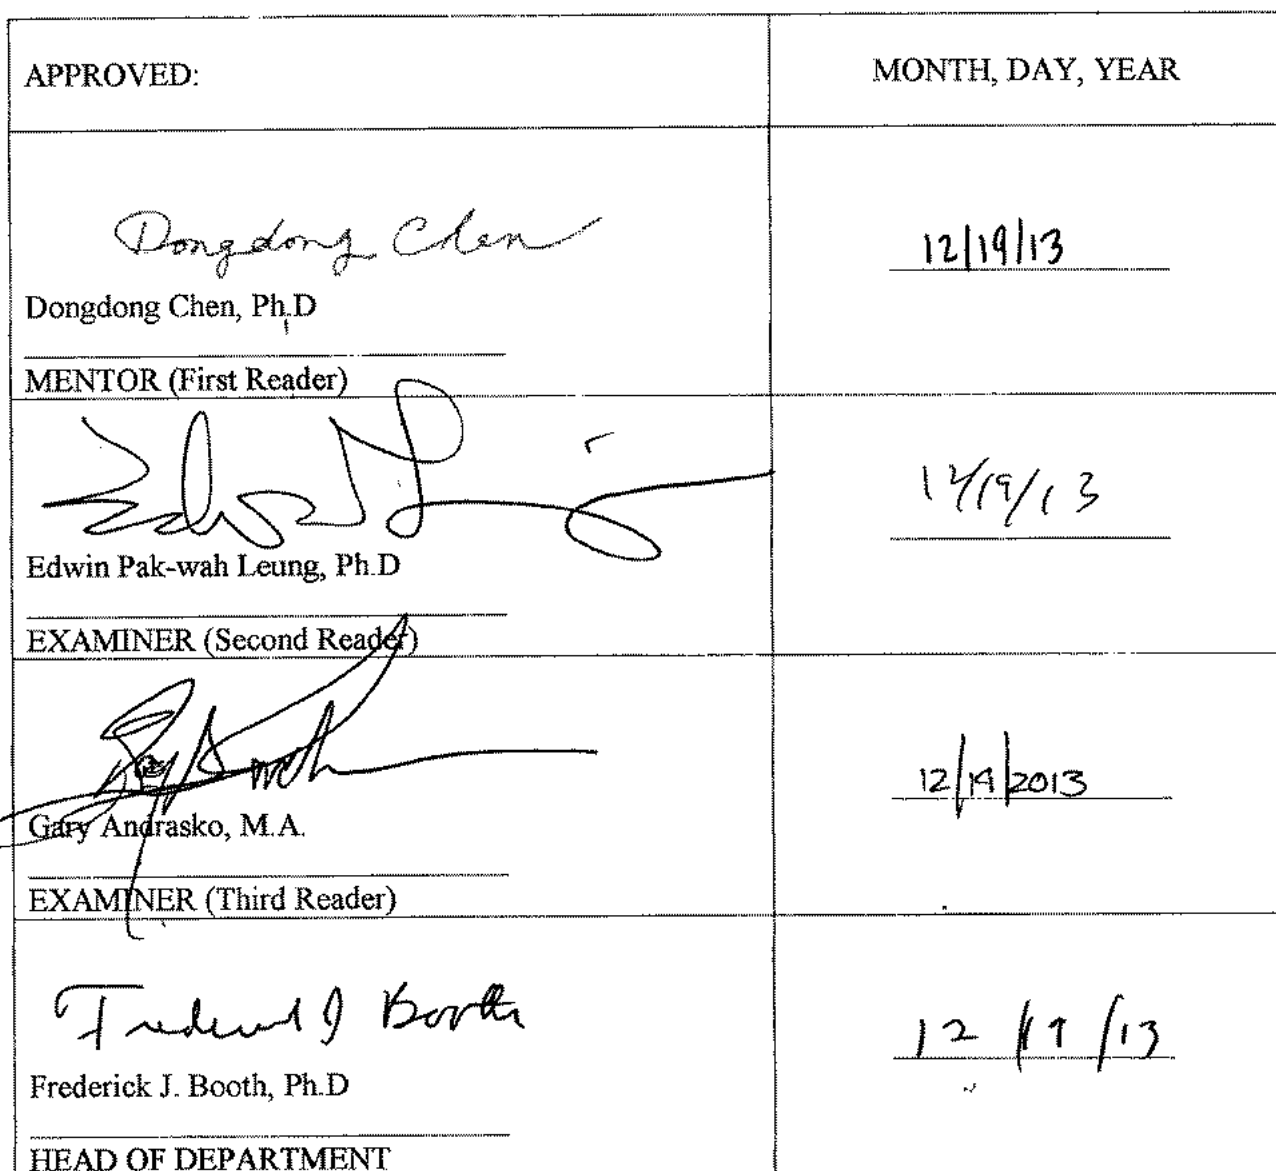 APPROVED:
MONTH, DAY, YEAR
Dongdong Chen
12/19/13
Dongdong Chen, Ph.D
MENTOR (First Reader)
12/19/13
Edwin Pak-wah Leung, Ph.D
EXAMINER (Second Reader)
12/19/2013
Gary Andrasko, M.A.
EXAMINER (Third Reader)
Frederick J Booth
12/19/13
Frederick J. Booth, Ph.D
HEAD OF DEPARTMENT